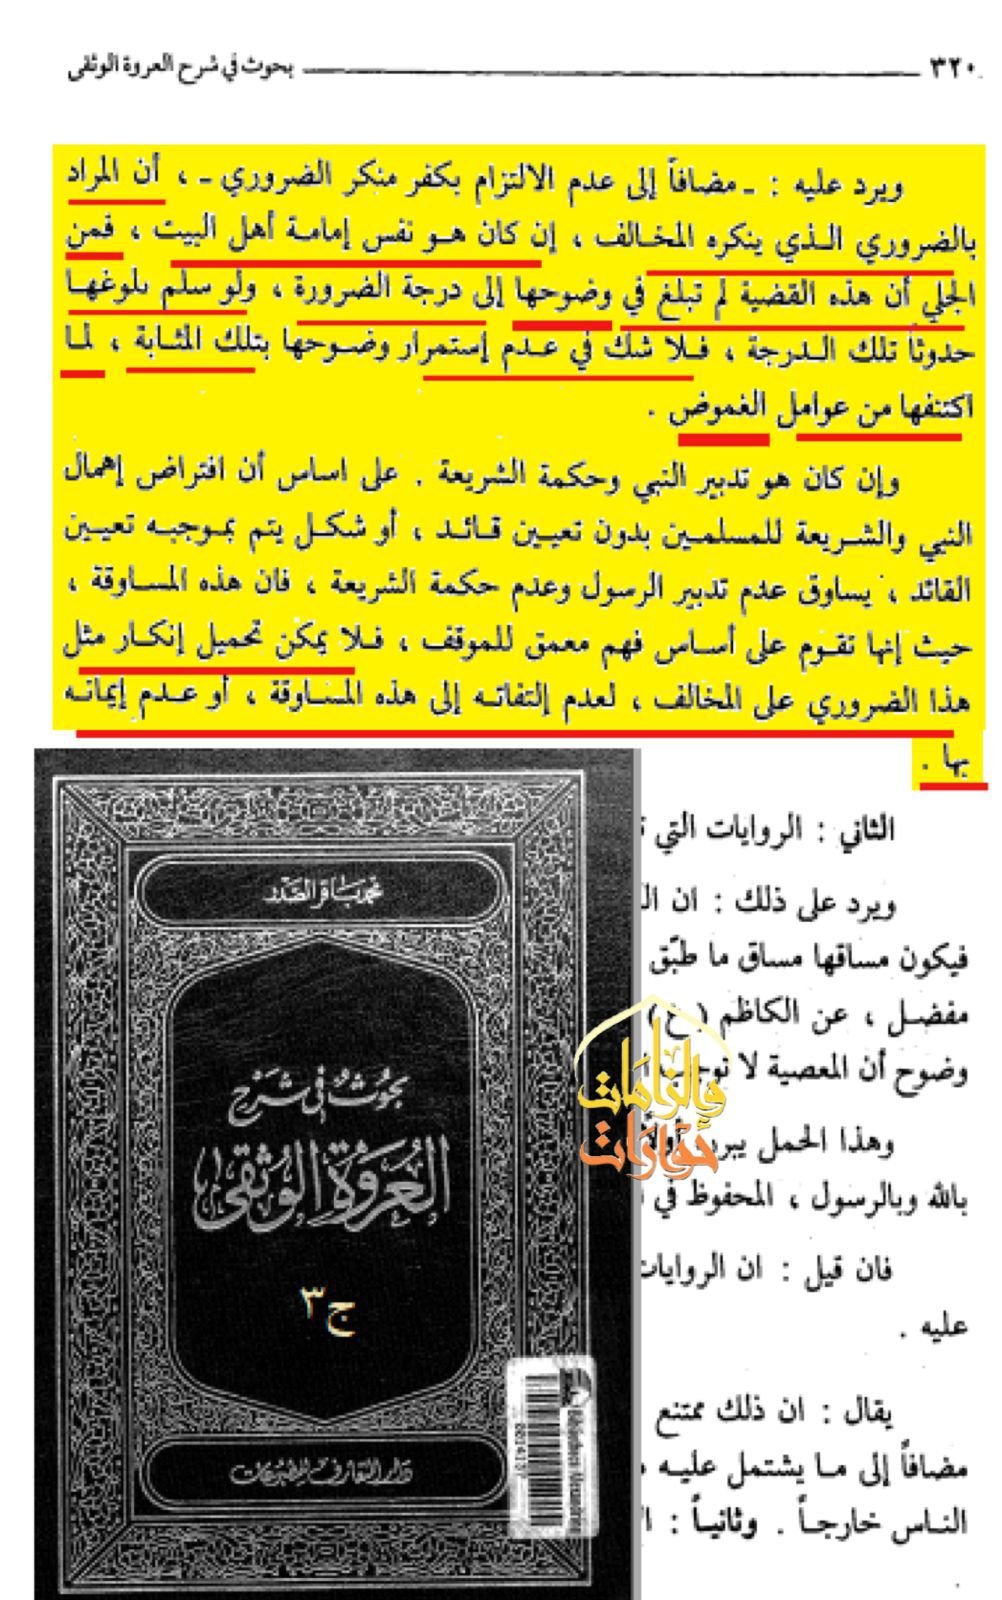 ٣٢٠ بحوث في شرح العروة الوثقى
ويرد عليه : ـ مضافاً إلى عدم الالتزام بكفر منكر الضروري ـ ، أن المراد
بالضروري الـذي ينكره المخـالف ، إن كان هـو نفس إمامـة أهـل البيت ، فمن
الجلي أن هذه القضية لم تبلغ في وضوحها إلى درجة الضرورة ، ولو سلم بلوغهـا
حدوثاً تلك الـدرجة ، فـلا شك في عـدم إستمرار وضـوحها بتلك المثـابة ، لمـا
اكتنفها من عوامل الغموض .
وإن كان هو تدبير النبي وحكمة الشريعة . على اساس أن افتراض إهمال
النبي والشـريعة للمسلمـين بدون تعيـين قـائـد ، أو شكـل يتم بمـوجبـه تعيـين
القائد ، يساوق عدم تدبير الرسول وعدم حكمة الشريعة ، فان هذه المسـاوقة ،
حيث إنها تقـوم على أسـاس فهم معمق للموقف ، فـلا يمكن تحميـل إنكـار مثل
هذا الضروري على المخالف ، لعدم إلتفاتـه إلى هذه المسـاوقة ، أو عـدم إيمانـه
بها .
الثاني : الروايات التي
ويرد على ذلك : ان
فيكون مساقها مساق ما طبّق
مفضـل ، عن الكاظم (ع)
وضوح أن المعصية لا
وهذا الحمل
بالله وبالرسول ، المحفوظ في
فان قيل : ان الروايات
عليه .
يقال : ان ذلك ممتنع
مضافاً إلى مـا يشتمل عليـه
النـاس خارجـاً . وثانيـاً :
محمد باقر الصدر
بحوث في شرح
العروة الوثقى
ج ٣
دار التعارف للمطبوعات
والزامات
حوارات